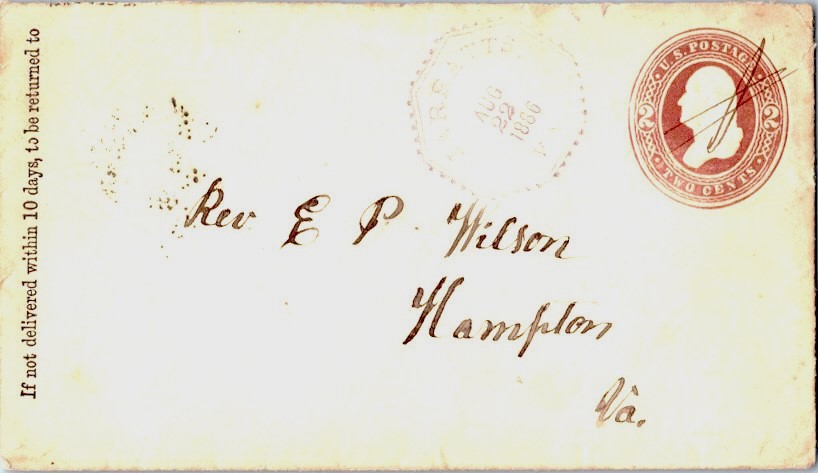 If not delivered within 10 days, to be returned to
AUG
22
1886
U.S. POSTAGE
2 2
TWO CENTS
Rev E P. Wilson
Hampton
Va.